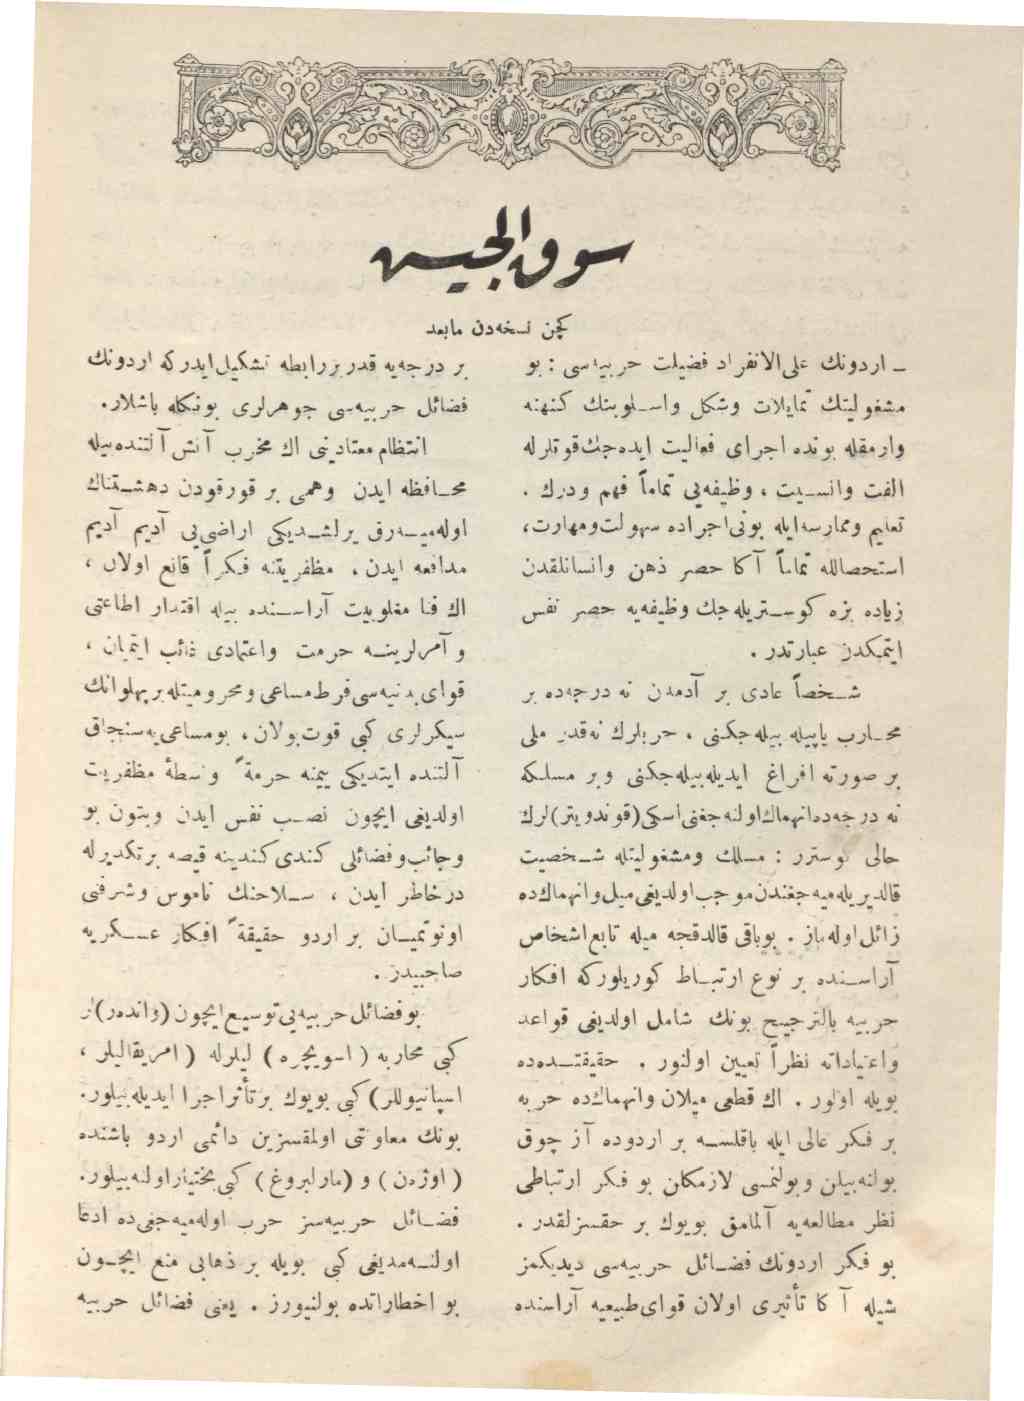 سوق الجيش
كچن نسخه‌دن مابعد
ـ اردونك علی‌الانفراد فضیلت حربیه‌سی : بو
مشغولیتك تمایلات وشكل واسلوبنك كنهنه
وارمقله بونده اجرای فعالیت ایده‌جك قوتلرله
الفت وانسیت ، وظیفه‌یی تماماً فهم ودرك .
تعلیم وممارسه ایله بونی اجراده سهولت ومهارت ،
استحصالله تماماً آكا حصر ذهن وانسانلقدن
زیاده بزه كوستریله‌جك وظیفه‌یه حصر نفس
ایتمكدن عبارتدر .
شخصاً عادی بر آدمدن نه درجه‌ده بر
محارب یاپیله بیله‌جكنی ، حربلرك نه‌قدر ملی
بر صورته افراغ ایدیله‌بیله‌جكنی وبر مسلكه
نه درجه‌ده انهماك اولنه‌جغنی اسكی (قوندوتیر) لرك
حالی كوسترر : مسلك ومشغولیتله شخصیت
قالدیریله‌میه‌جغندن موجب اولدیغی میل وانهماك ده
زائل اوله‌ماز . بوباقی قالدقجه میله تابع اشخاص
آراسنده بر نوع ارتباط كوریلوركه افكار
حربیه بالترجیح بونك شامل اولدیغی قواعد
واعتیاداته نظراً تعیین اولنور . حقیقتده‌ده
بویله اولور . اك قطعی میلان وانهماك‌ده حربه
بر فكر عالی ایله باقلسه بر اردوده آز چوق
بولنه‌بیلن وبولنمسی لازمكلن بو فكر ارتباطی
نظر مطالعه‌یه آلمامق بویوك بر حقسزلقدر .
بو فكر اردونك فضائل حربیه‌سی دیدیكمز
شیله آكا تأثیری اولان قوای طبیعیه آراسنده
بر درجه‌یه قدر بررابطه تشكیل ایدركه اردونك
فضائل حربیه‌سی جوهرلری بونكله باشلار .
انتظام معتادینی اك مخرب آتش آلتنده بیله
محافظه ایدن وهمی بر قورقودن دهشتناك
اوله‌میه‌رق یرلشدیكی اراضی‌یی آدیم آدیم
مدافعه ایدن ، مظفریتنه فكراً قانع اولان ،
اك فنا مغلوبیت آراسنده بیله اقتدار اطاعتی
و آمرلرینه حرمت واعتمادی غائب ایتمیان ،
قوای بدنیه‌سی فرط مساعی ومحرومیتله بر پهلوانك
سیكرلری كبی قوت بولان ، بومساعی‌یه سنجاق
آلتنده ایتدیكی یمینه حرمةً وسطهٔ مظفریت
اولدیغی ایچون نصب نفس ایدن وبتون بو
وجائب وفضائلی كندی كندینه قیصه بر تكدیرله
درخاطر ایدن ، سلاحنك ناموس وشرفنی
اونوتمیان بر اردو حقیقةً افكار عسكریه
صاحبیدر .
بو فضائل حربیه‌یی توسیع ایچون (وانده‌ر) لر
كبی محاربه ( اسویچره ) لیلرله ( امریقالیلر ،
اسپانیوللر) كبی بویوك بر تأثر اجرا ایدیله‌بیلور .
بونك معاونتی اولمقسزین دائمی اردو باشنده
( اوژدن ) و (مارلبروغ ) كبی بختیار اولنه‌بیلور .
فضائل حربیه‌سز حرب اوله‌میه‌جغی‌ده ادعا
اولنه‌مدیغی كبی بویله بر ذهابی منع ایچون
بو اخطاراتده بولنیورز . یعنی فضائل حربیه